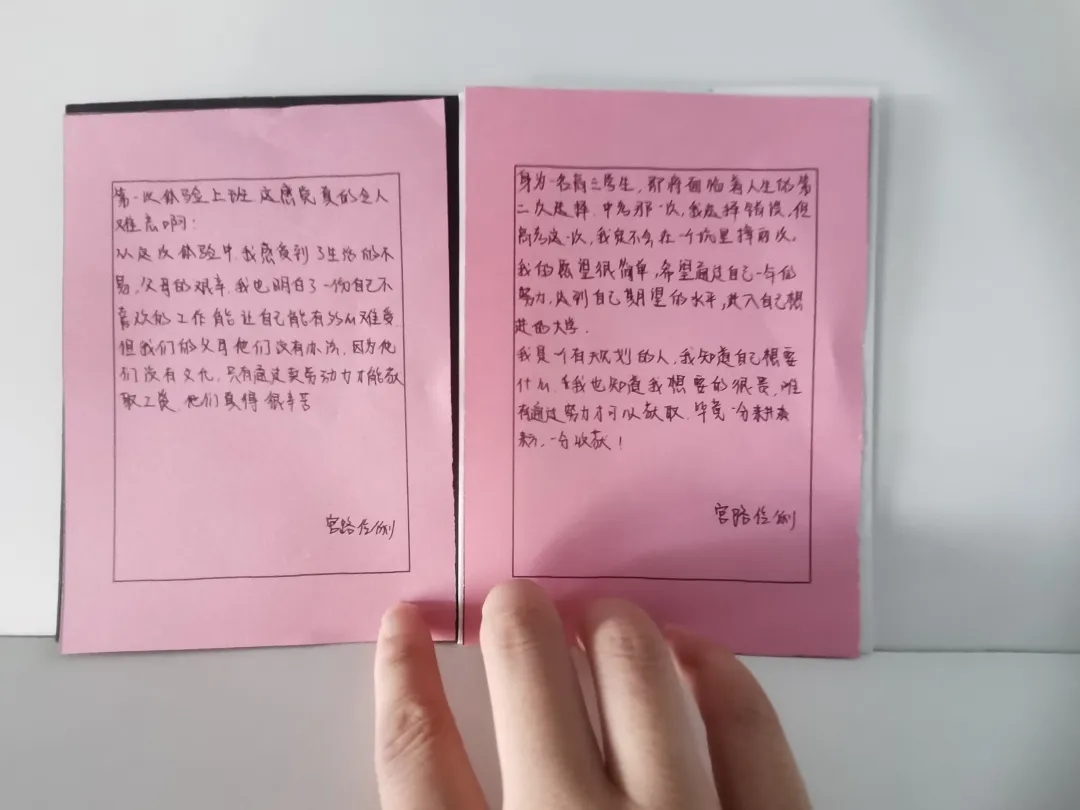 第一次体验上班这感觉真的令人
难忘啊!
从这次体验中,我感受到了生活的不
易,父母的艰辛.我也明白了一份自己不
喜欢的工作能让自己能有多么难受.
但我们的父母他们没有办法,因为他
们没有文化,只有通过卖劳动力才能获
取工资,他们真得很辛苦
宫路
身为一名高三学生,即将面临着人生的第
二次选择.中考那一次,我选择错误,但
高考这一次,我就不会在一个坑里摔两次。
我的愿望很简单,希望通过自己一年的
努力,达到自己期望的水平,进入自己想
进的大学.
我是一个有规划的人,我知道自己想要
什么.我也知道我想要的很贵,唯
有通过努力才可以获取.毕竟一分耕
耘,一分收获!
宫路